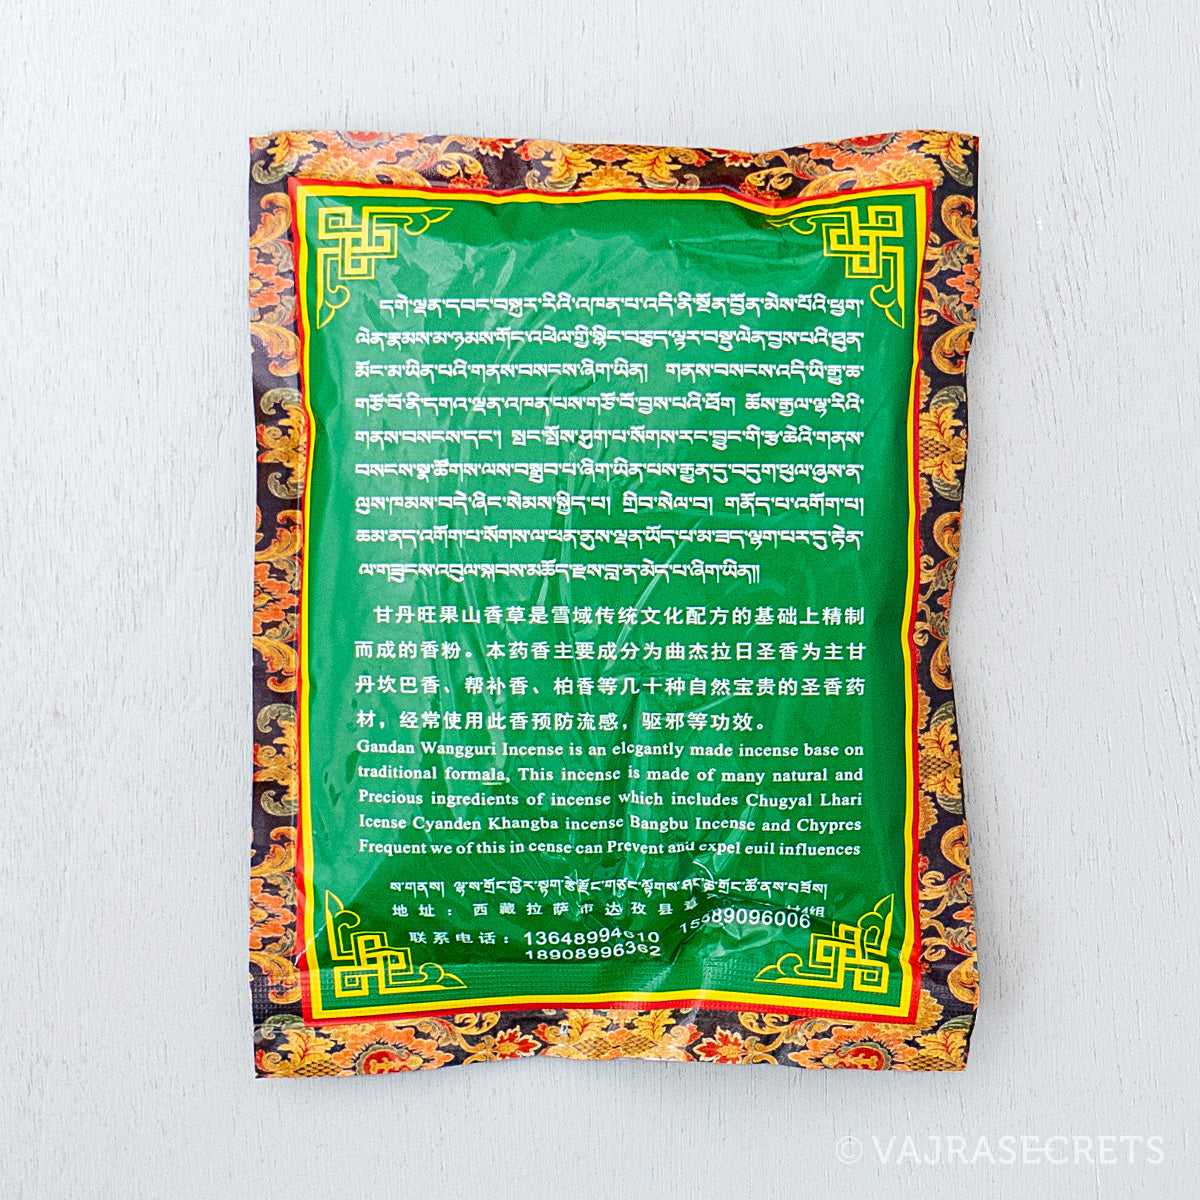 དགེ་ལྡན་དབང་བསྐུར་རིའི་འཁན་པ་འདི་ནི་སྔོན་བྱོན་མེས་པོའི་ཕྱག་
ལེན་རྣམས་མ་ཉམས་གོང་འཕེལ་གྱི་སྙིང་བཅུད་ལྟར་བསྡུ་ལེན་བྱས་པའི་ཐུན་
མོང་མ་ཡིན་པའི་གནས་བསངས་ཞིག་ཡིན། གནས་བསངས་འདི་ཡི་རྒྱུ་ཆ་
གཙོ་བོ་ནི་དགའ་ལྡན་འཁན་པས་གཙོ་བོ་བྱས་པའི་ཐོག ཆོས་རྒྱལ་ལྷ་རིའི་
གནས་བསངས་དང་། སྤང་སྤོས་ཤུག་པ་སོགས་རང་བྱུང་གི་རྩ་ཆེའི་གནས་
བསངས་སྣ་ཚོགས་ལས་བསྒྲུབ་པ་ཞིག་ཡིན་པས་རྒྱུན་དུ་བདུག་ཕུལ་ཉུས་ན་
ལུས་ཁམས་བདེ་ཞིང་སེམས་སྐྱིད་པ། གྲིབ་སེལ་བ། གནོད་པ་འགོག་པ།
ཆམ་ནད་འགོག་པ་སོགས་ལ་ཕན་ནུས་ལྡན་ཡོད་པ་མ་ཟད་ལྷག་པར་དུ་རྟེན་
ལ་གཟུངས་འབུལ་སྐབས་མཆོད་རྫས་བླ་ན་མེད་པ་ཞིག་ཡིན།།
甘丹旺果山香草是雪域传统文化配方的基础上精制
而成的香粉。本药香主要成分为曲杰拉日圣香为主甘
丹坎巴香、帮补香、柏香等几十种自然宝贵的圣香药
材，经常使用此香预防流感，驱邪等功效。
Gandan Wangguri Incense is an elegantly made incense base on
traditional formala, This incense is made of many natural and
Precious ingredients of incense which includes Chugyal Lhari
Icense Cyanden Khangba incense Bangbu Incense and Chypres
Frequent we of this in cense can Prevent and expel euil influences
ས་གནས། ལྷ་ས་གྲོང་ཁྱེར་སྟག་རྩེ་རྫོང་གཙང་ལྟོགས་ཤང་གྲོང་ཚོ་ནས་བཟོས།
地址：西藏拉萨市达孜县 村4组
联系电话：13648994610 15889096006
18908996362
© VAJRASECRETS